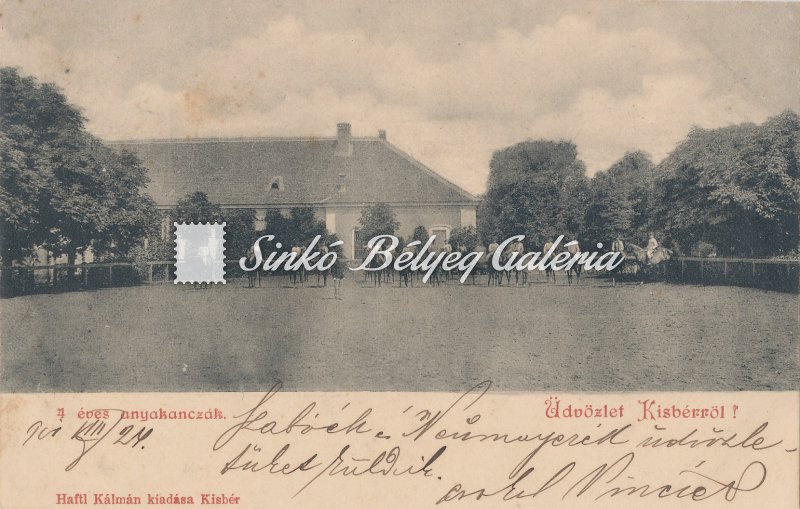 Sinkó Bélyeg Galéria
4 éves anyakanczák.
Üdvözlet Kisbérről!
901 VIII/24
Szabóék és Neumayerék üdvözle-
tüket küldik.
Vinczét
Haftl Kálmán kiadása Kisbér